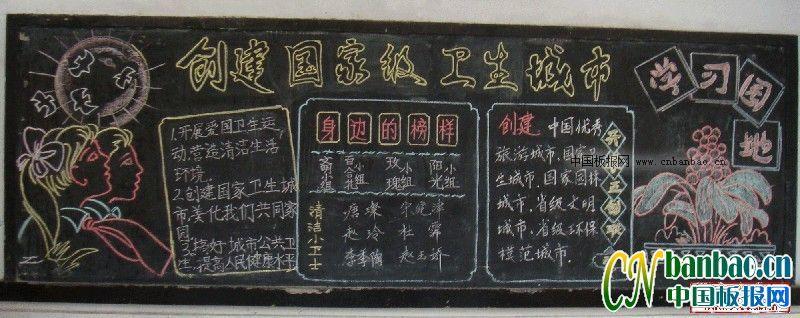 创建国家级卫生城市
学习园
地
1.开展爱国卫生运
动,营造清洁生活
环境.
2.创建国家卫生城
市,美化我们共同家
园.
3.搞好城市公共卫
生,提高人民健康水平
身边的榜样
小组
百合花小组
玫小组
阳光小组
清洁小卫士
唐
赵玲 杜
创建 中国优秀
旅游城市.国家卫
生城市.国家园林
城市.省级文明
城市.省级环保
模范城市.
中国板报网
www.cnbanbao.cn
CNbanbao.cn
中国板报网